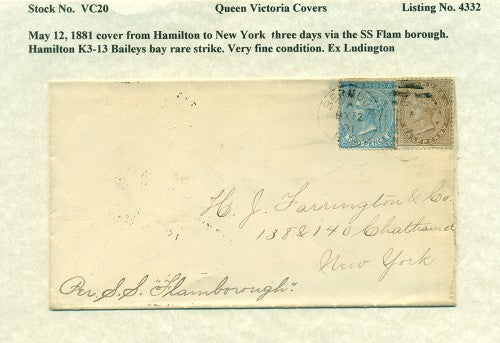 Stock No. VC20 Queen Victoria Covers Listing No. 4332
May 12, 1881 cover from Hamilton to New York three days via the SS Flam borough.
Hamilton K3-13 Baileys bay rare strike. Very fine condition. Ex Ludington
BERMUDA
MY 12
BERMUDA
H. J. Farrington & Co.
138 & 140 Chatham
New York
Per S.S. "Flamborough".